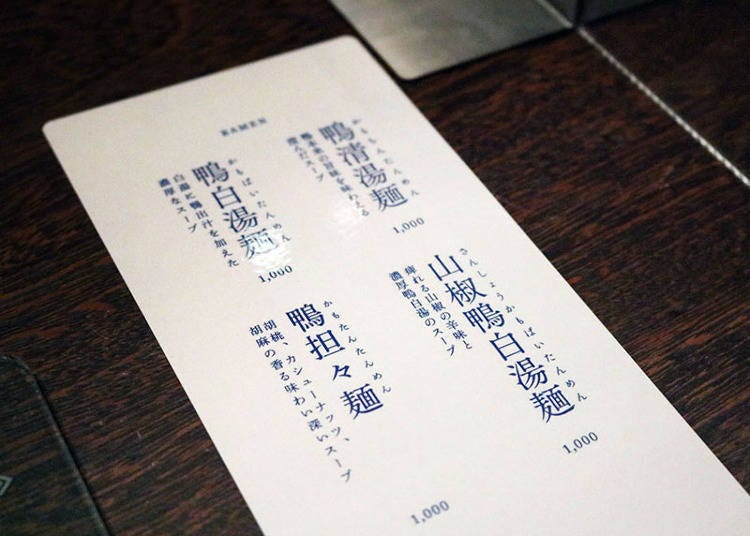 RAMEN
かももんたんめん
鴨清湯麺
鴨本来の旨味を味わえる
澄んだスープ
1,000
かもぱいたんめん
鴨白湯麺
白湯に鴨出汁を加えた
濃厚なスープ
1,000
さんしょうかもぱいたんめん
山椒鴨白湯麺
痺れる山椒の辛味と
濃厚鴨白湯のスープ
1,000
かもたんたんめん
鴨担々麺
胡桃、カシューナッツ、
胡麻の香る味わい深いスープ
1,000